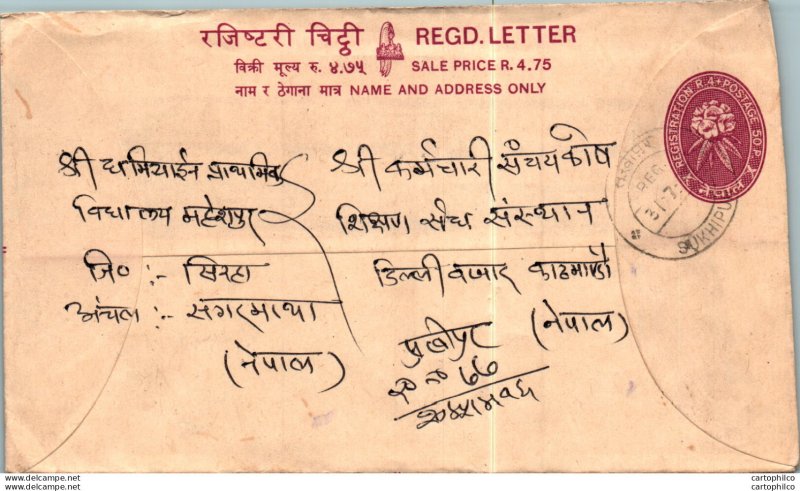 रजिष्टरी चिट्ठी REGD. LETTER
बिक्री मूल्य रु. ४.७५ SALE PRICE R. 4.75
नाम र ठेगाना मात्र NAME AND ADDRESS ONLY
REGISTRATION R.4+POSTAGE 50P.
नेपाल
REG
31-7-
SUKHIPU
श्री धमियाईन प्राथमिक
विद्यालय महेशपुर
जि० :- सिरहा
अंचल :- सगरमाथा
(नेपाल)
श्री कर्मचारी संचयकोष
शिक्षण संघ संस्थान
डिल्ली बजार काठमाण्डौ
(नेपाल)
र० न० ७७
cartophilco
cartophilco
cartophilco
cartophilco